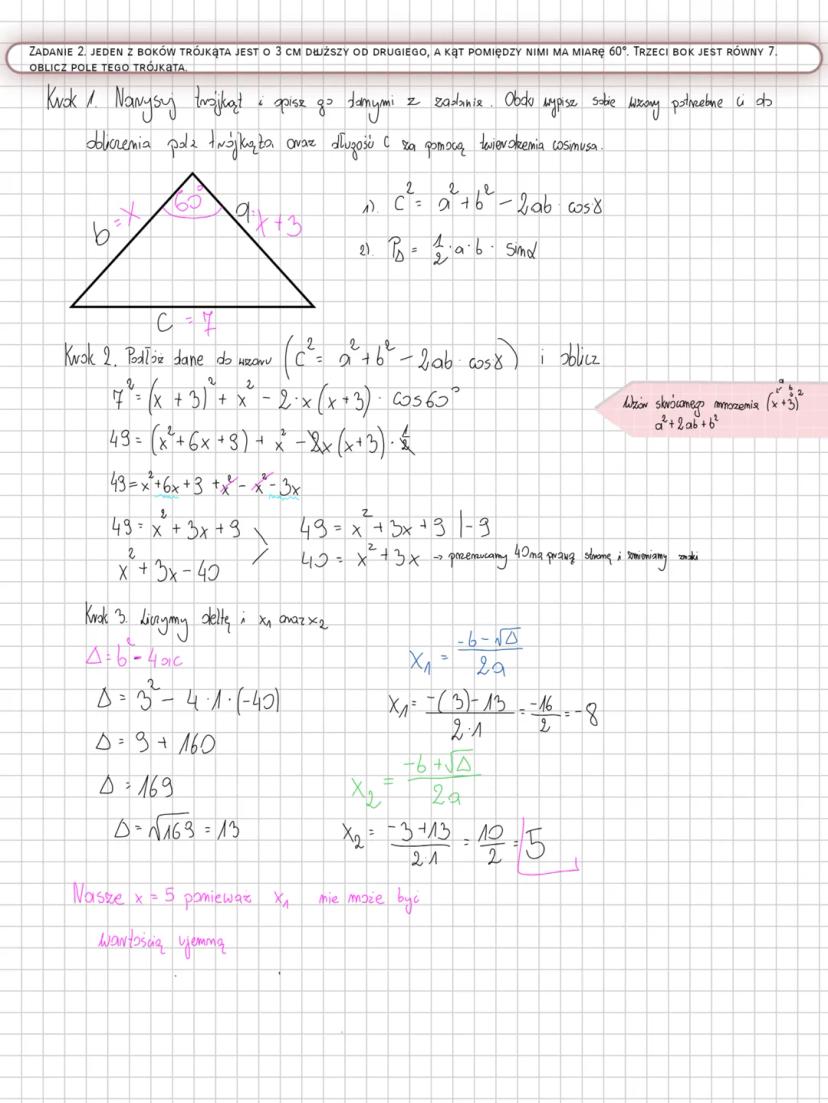 ZADANIE 2. JEDEN Z BOKÓW TRÓJKĄTA JEST O 3 CM DŁUŻSZY OD DRUGIEGO, A KĄT POMIĘDZY NIMI MA MIARĘ 60°. TRZECI BOK JEST RÓWNY 7.
OBLICZ POLE TEGO TRÓJKĄTA.
Krok 1. Narysuj trójkąt i opisz go danymi z zadania. Obok wypisz sobie wzory potrzebne ci do
obliczenia pola trójkąta oraz długości c za pomocą twierdzenia cosinusa.
60°
b = x
a = x+3
c = 7
1). c² = a² + b² - 2ab · cosγ
2). P△ = 1/2 · a · b · sinα
Krok 2. Podłóż dane do wzoru (c² = a² + b² - 2ab · cosγ) i oblicz
7² = (x + 3)² + x² - 2 · x (x+3) · cos60°
49 = (x² + 6x + 9) + x² - 2x (x+3) · 1/2
49 = x² + 6x + 9 + x² - x² - 3x
49 = x² + 3x + 9
x² + 3x - 40
49 = x² + 3x + 9 |-9
40 = x² + 3x → przerzucamy 40 na prawą stronę i zmieniamy znaki
Wzór skróconego mnożenia (x+3)²
a b
a² + 2ab + b²
Krok 3. Liczymy deltę i x₁ oraz x₂
Δ = b² - 4ac
Δ = 3² - 4 · 1 · (-40)
Δ = 9 + 160
Δ = 169
Δ = √169 = 13
x₁ = -b-√Δ / 2a
x₁ = -(3)-13 / 2·1 = -16/2 = -8
x₂ = -b+√Δ / 2a
x₂ = -3+13 / 2·1 = 10/2 = 5
Nasze x = 5 ponieważ x₁ nie może być
wartością ujemną